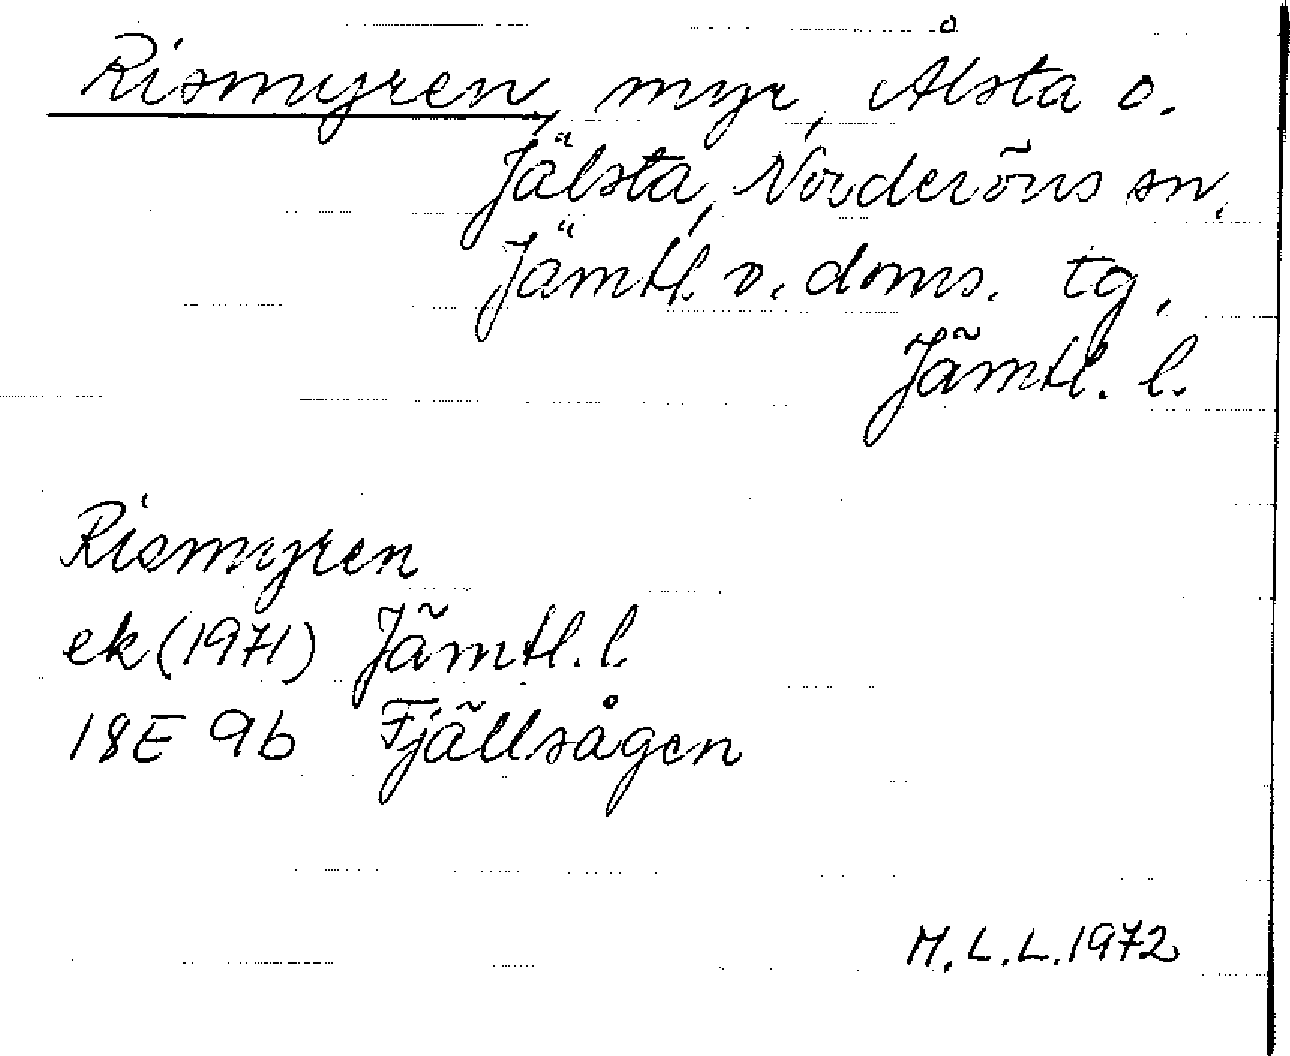 Rismyren, myr, Ålsta o.
Jälsta, Norderöns sn.
Jämtl. v. doms. tg.
Jämtl. l.
Rismyren
ek (1971) Jämtl. l.
18E 9b Fjällsågen
M. L. L. 1972